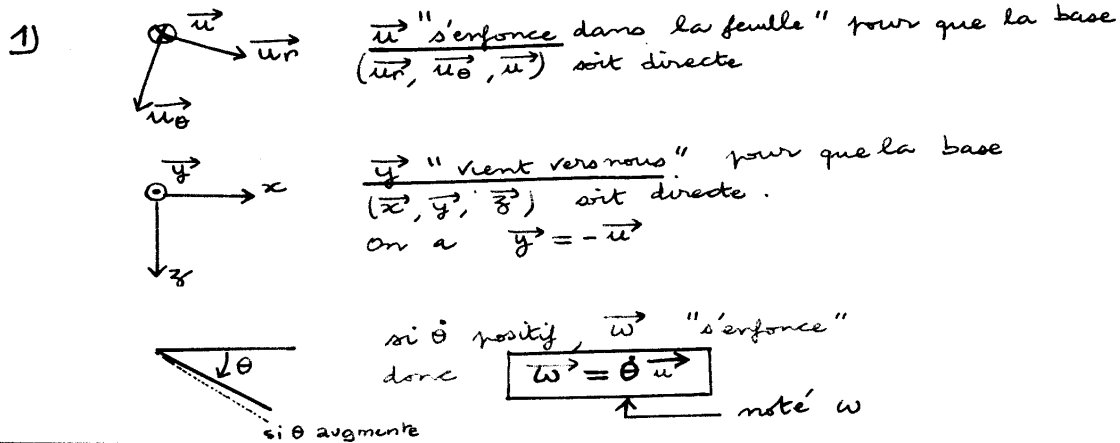 1) u⃗ u⃗r u⃗θ
u⃗ "s'enfonce dans la feuille" pour que la base
(u⃗r, u⃗θ, u⃗) soit directe
y⃗ x z
y⃗ "vient vers nous" pour que la base
(x⃗, y⃗, z⃗) soit directe.
On a y⃗ = - u⃗
θ
si θ augmente
si θ̇ positif, ω⃗ "s'enfonce"
donc ω⃗ = θ̇ u⃗
noté ω